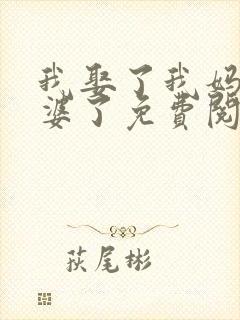 我娶了我妈
婆了免费阅
荻尾彬